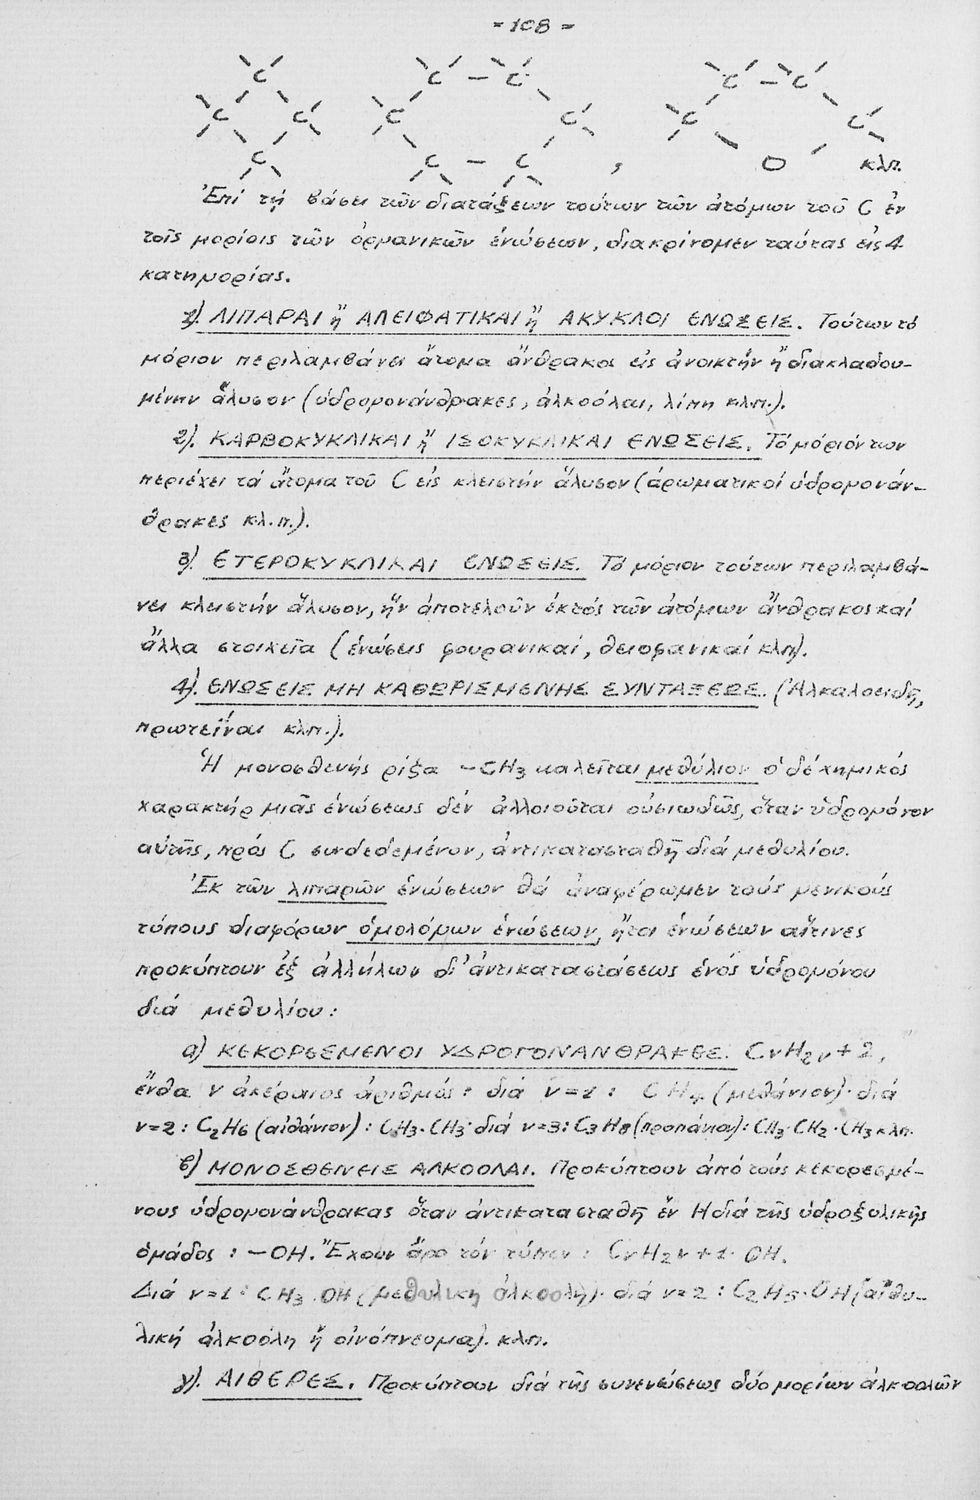 - 108 -
C C - C C - C
C C C C C C
C C - C , O κλπ.
Ἐπί τῇ βάσει τῶν διατάξεων τούτων τῶν ἀτόμων τοῦ C ἐν
τοῖς μορίοις τῶν ὀργανικῶν ἑνώσεων, διακρίνομεν ταύτας εἰς 4
κατηγορίας.
1). ΛΙΠΑΡΑΙ ἤ ΑΛΕΙΦΑΤΙΚΑΙ ἤ ΑΚΥΚΛΟΙ ΕΝΩΣΕΙΣ. Τούτων τό
μόριον περιλαμβάνει ἄτομα ἄνθρακος εἰς ἀνοικτήν ἤ διακλαδου-
μένην ἅλυσον (ὑδρογονάνθρακες, ἀλκοόλαι, λίπη κλπ.).
2). ΚΑΡΒΟΚΥΚΛΙΚΑΙ ἤ ΙΣΟΚΥΚΛΙΚΑΙ ΕΝΩΣΕΙΣ. Τό μόριόν των
περιέχει τά ἄτομα τοῦ C εἰς κλειστήν ἅλυσον (ἀρωματικοί ὑδρογονάν-
θρακες κλ.π.).
3). ΕΤΕΡΟΚΥΚΛΙΚΑΙ ΕΝΩΣΕΙΣ. Τό μόριον τούτων περιλαμβά-
νει κλειστήν ἅλυσον, ἥν ἀποτελοῦν ἐκτός τῶν ἀτόμων ἄνθρακος καί
ἄλλα στοιχεῖα (ἑνώσεις φουρανικαί, θειοφανικαί κλπ).
4). ΕΝΩΣΕΙΣ ΜΗ ΚΑΘΩΡΙΣΜΕΝΗΣ ΣΥΝΤΑΞΕΩΣ. (Ἀλκαλοειδῆ,
πρωτεΐναι κλπ.).
Ἡ μονοσθενής ρίζα -CH3 καλεῖται μεθύλιον ὁ δέ χημικός
χαρακτήρ μιᾶς ἑνώσεως δέν ἀλλοιοῦται οὐσιωδῶς, ὅταν ὑδρογόνον
αὐτῆς, πρός C συνδεδεμένον, ἀντικατασταθῇ διά μεθυλίου.
Ἐκ τῶν λιπαρῶν ἑνώσεων θά ἀναφέρωμεν τούς γενικούς
τύπους διαφόρων ὁμολόγων ἑνώσεων, ἤτοι ἑνώσεων αἵτινες
προκύπτουν ἐξ ἀλλήλων δι' ἀντικαταστάσεως ἑνός ὑδρογόνου
διά μεθυλίου:
α) ΚΕΚΟΡΕΣΜΕΝΟΙ ΥΔΡΟΓΟΝΑΝΘΡΑΚΕΣ. CνH2ν+2,
ἔνθα ν ἀκέραιος ἀριθμός: διά ν=1: CH4 (μεθάνιον)· διά
ν=2: C2H6 (αἰθάνιον): CH3·CH3· διά ν=3: C3H8 (προπάνιον): CH3·CH2·CH3 κλπ.
β) ΜΟΝΟΣΘΕΝΕΙΣ ΑΛΚΟΟΛΑΙ. Προκύπτουν ἀπό τούς κεκορεσμέ-
νους ὑδρογονάνθρακας ὅταν ἀντικατασταθῇ ἕν H διά τῆς ὑδροξυλικῆς
ὁμάδος: -OH. Ἔχουν ἄρα τόν τύπον: CνH2ν+1·OH.
Διά ν=1: CH3.OH (μεθυλική ἀλκοόλη)· διά ν=2: C2H5·OH (αἰθυ-
λική ἀλκοόλη ἤ οἰνόπνευμα). κλπ.
γ). ΑΙΘΕΡΕΣ. Προκύπτουν διά τῆς συνενώσεως δύο μορίων ἀλκοολῶν